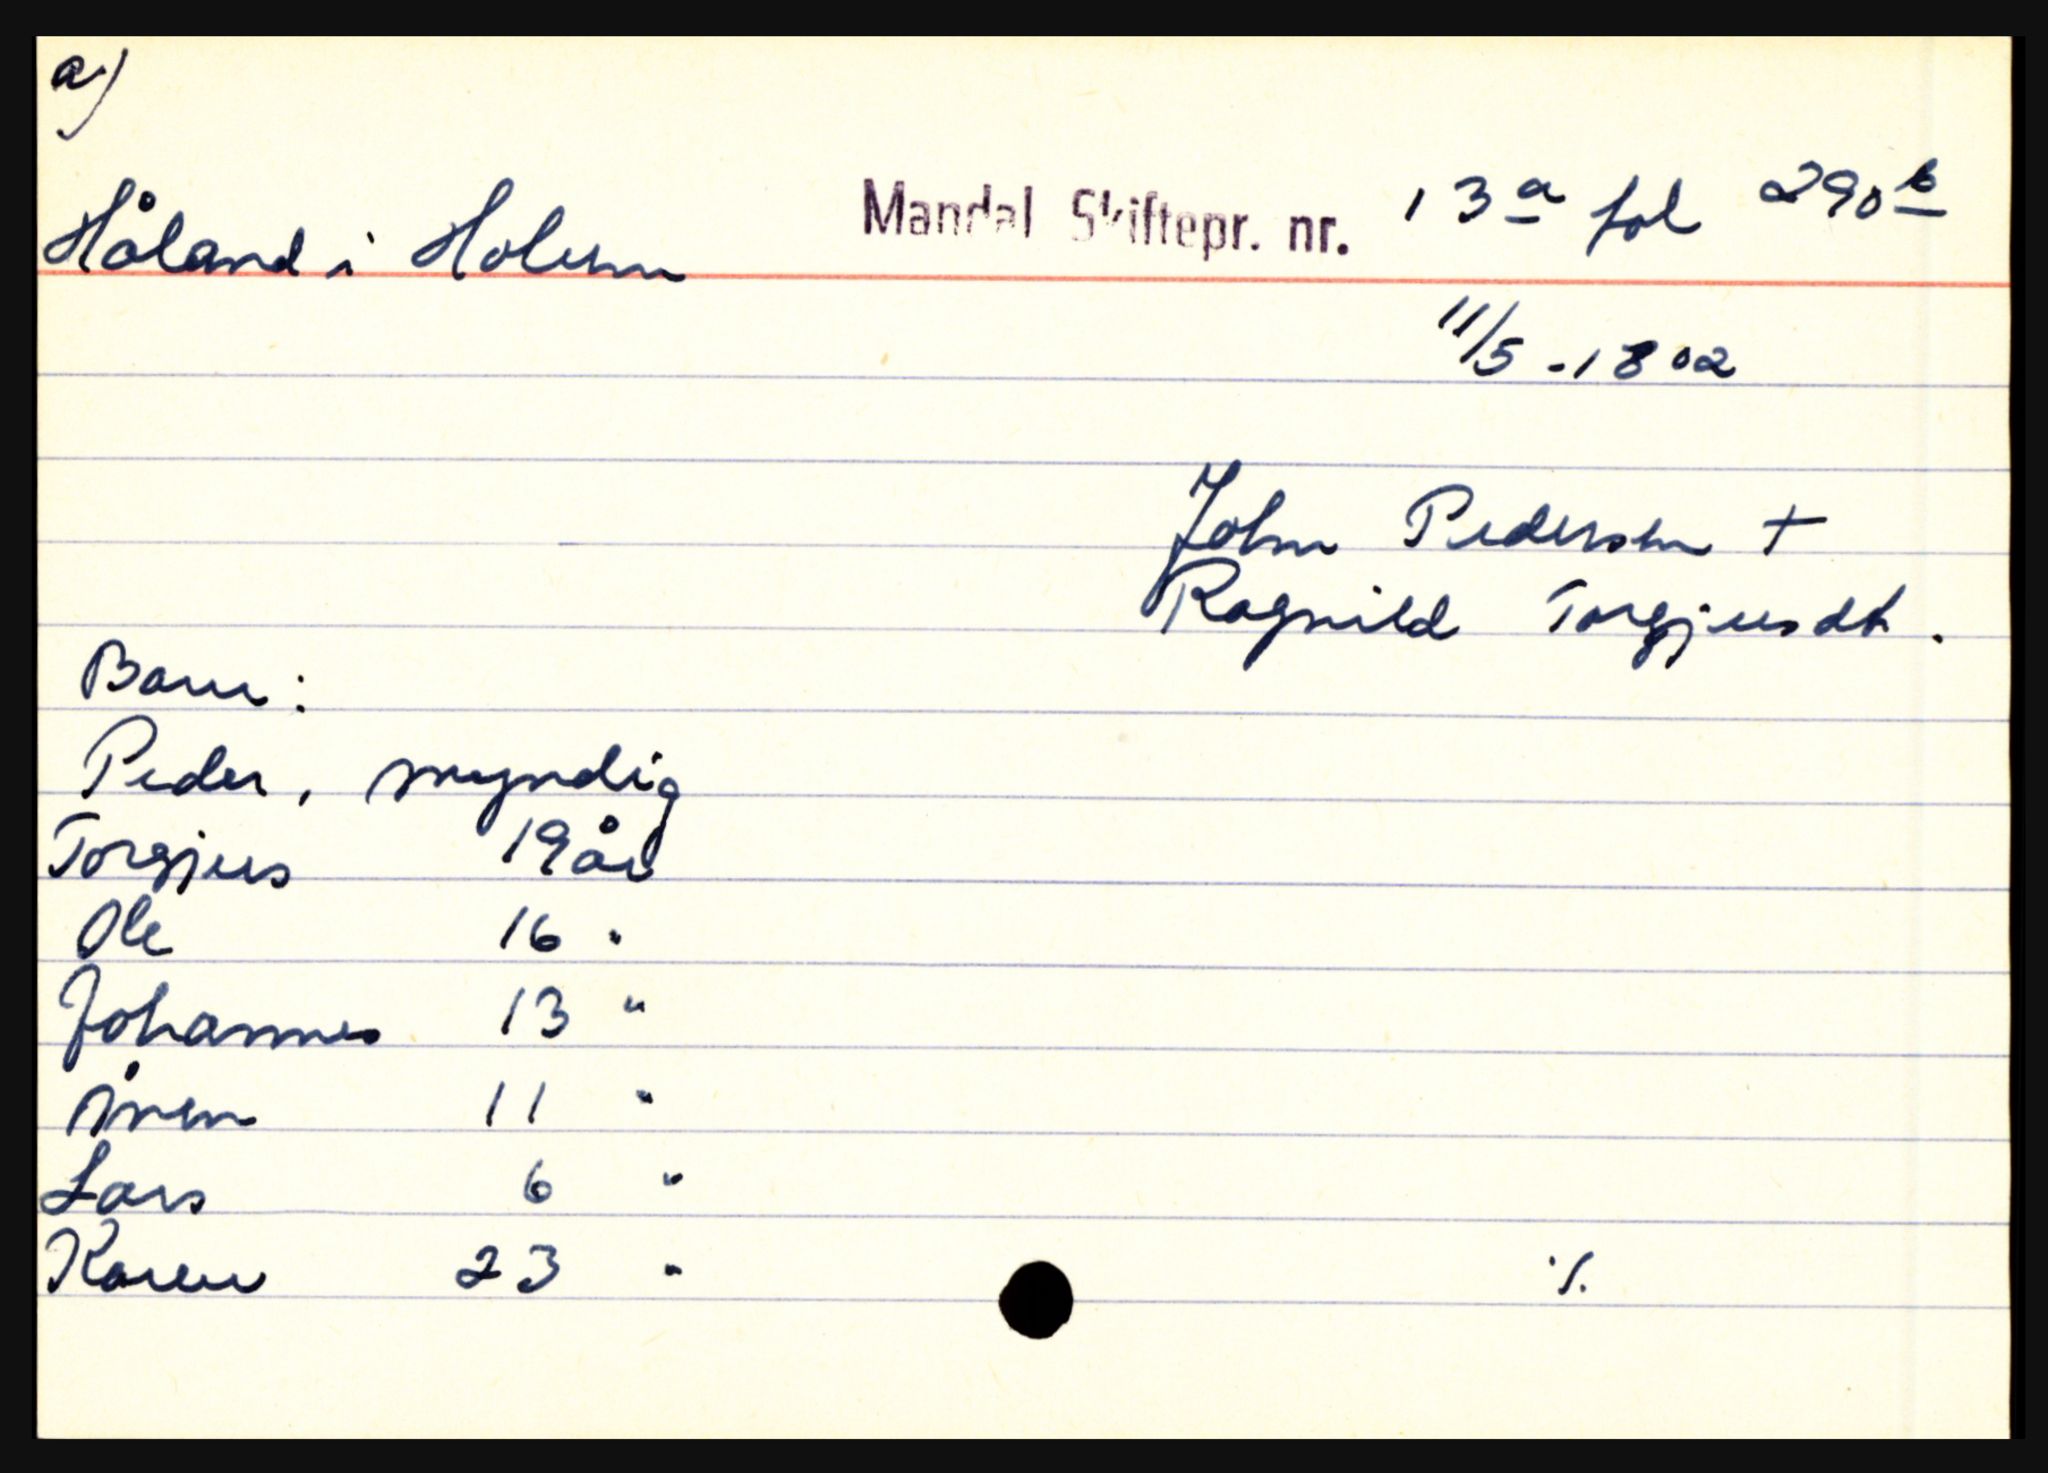 a)
Håland i Holum Mandal Skiftepr. nr. 13a fol 290b
11/5 - 1802
John Pedersen +
Ragnild Torgjusdt.
Barn:
Peder, myndig
Torgjus 19 år
Ole 16 "
Johannes 13 "
11 "
Lars 6 "
Karen 23 "
./.